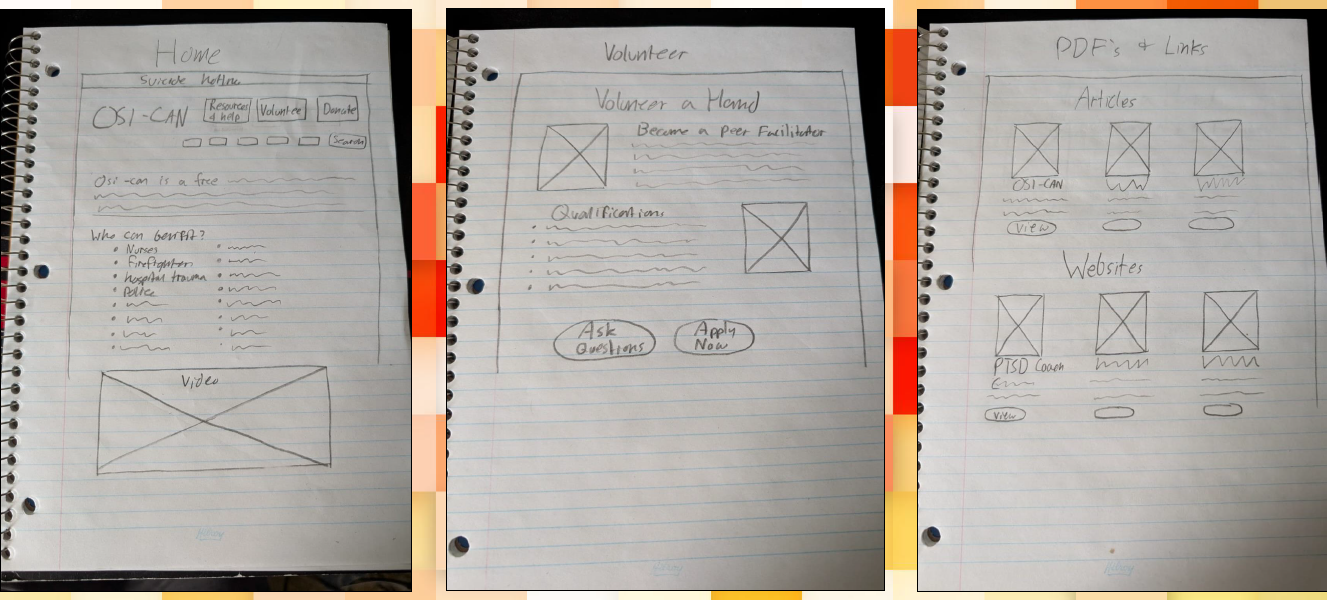 Home
Suicide hotline
OSI-CAN
Resources & help
Volunteer
Donate
Search
Osi-can is a free
Who can benefit?
• Nurses
• Firefighters
• hospital trauma
• Police
Video
Volunteer
Volunteer a Hand
Become a Peer Facilitator
Qualifications
Ask Questions
Apply Now
PDF's & Links
Articles
OSI-CAN
View
Websites
PTSD Coach
View
Hilroy
Hilroy
Hilroy